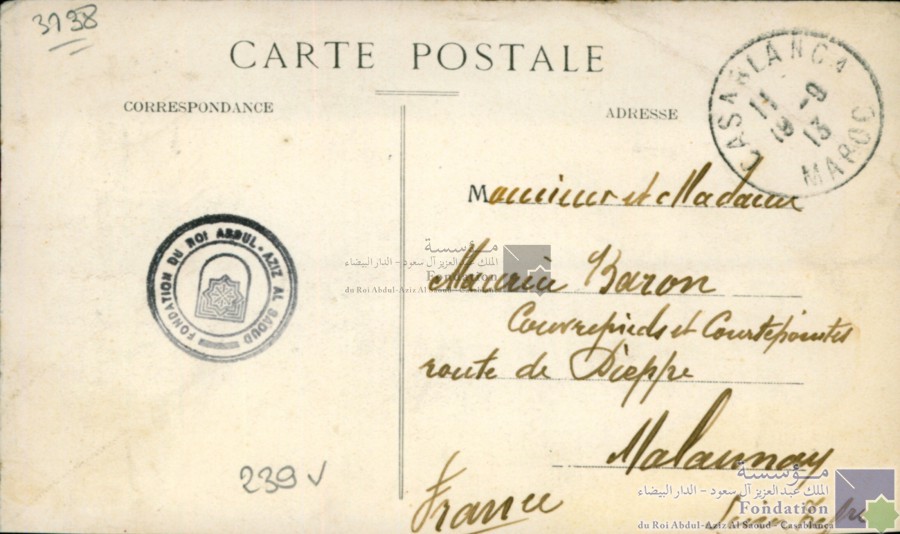 3738
CARTE POSTALE
CORRESPONDANCE
ADRESSE
CASABLANCA
11 -9
19 13
MAROC
Monsieur et Madame
Maurice Baron
Couvrepieds et Courtepointes
route de Dieppe
Malaunay
France
FONDATION DU ROI ABDUL-AZIZ AL SAOUD
239
مؤسسة
الملك عبد العزيز آل سعود - الدار البيضاء
Fondation
du Roi Abdul-Aziz Al Saoud - Casablanca
مؤسسة
الملك عبد العزيز آل سعود - الدار البيضاء
Fondation
du Roi Abdul-Aziz Al Saoud - Casablanca